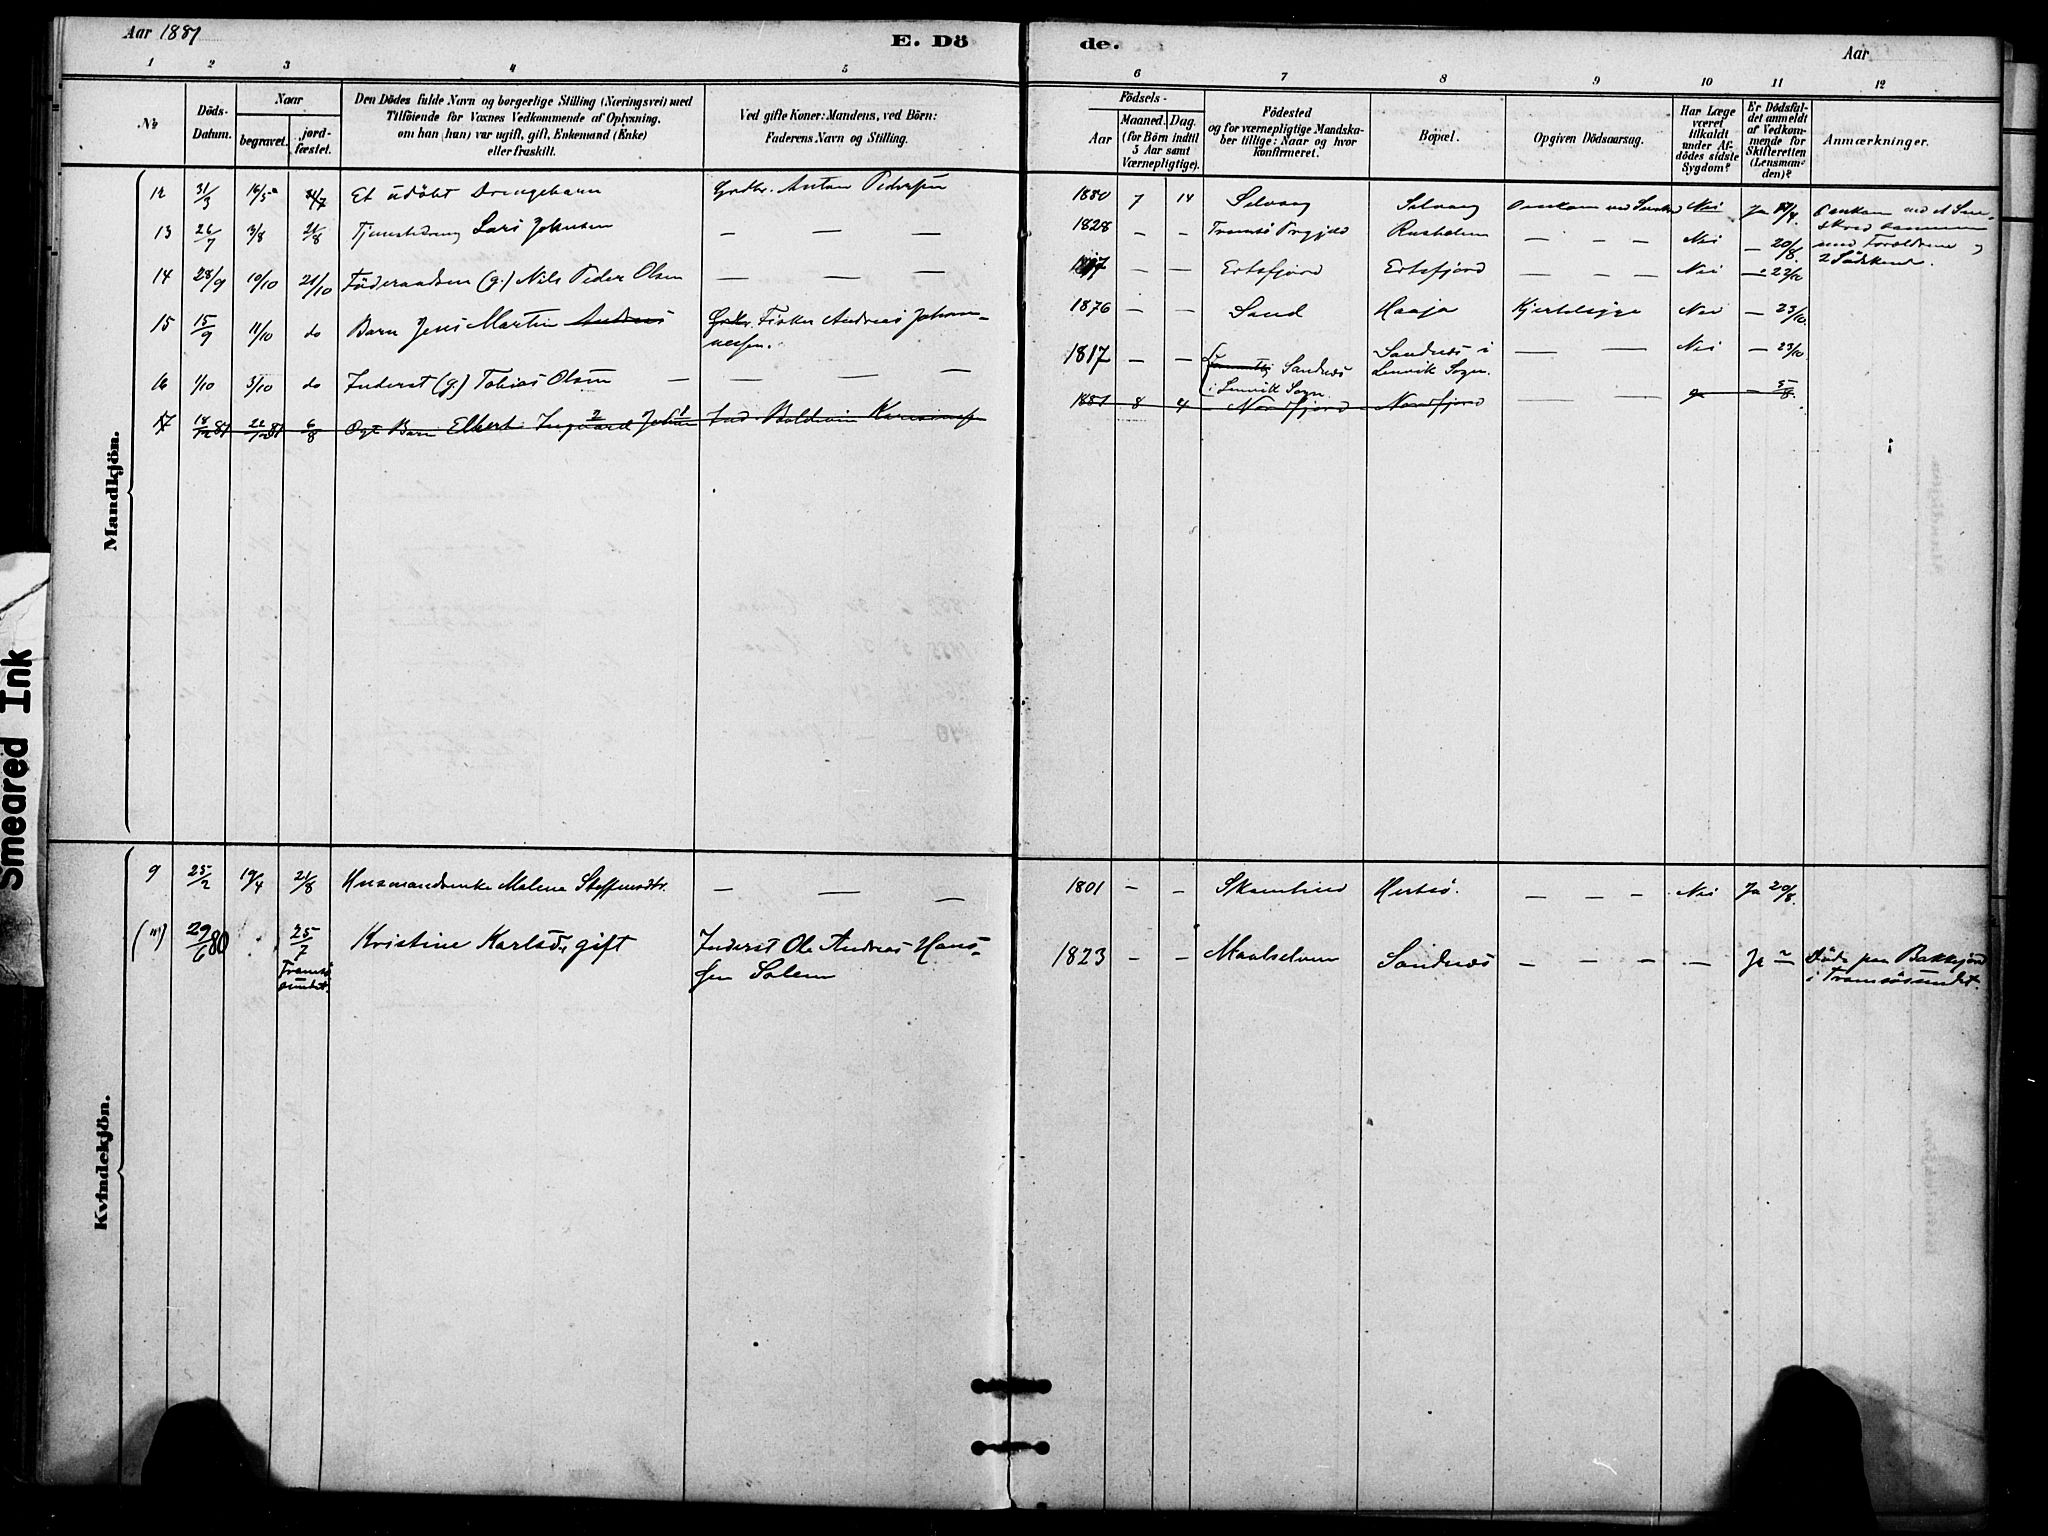 Aar 1881
E. Dö
de.
Aar
1 2 3 4 5 6 7 8 9 10 11 12
No
Döds-Datum.
Naar
begravet.
jord-fæstet.
Den Dödes fulde Navn og borgerlige Stilling (Næringsvei) med
Tilföiende for Voxnes Vedkommende af Oplysning,
om han (hun) var ugift, gift, Enkemand (Enke)
eller fraskilt.
Ved gifte Koner: Mandens, ved Börn:
Faderens Navn og Stilling.
Födsels-
Aar
Maaned. Dag.
(for Börn indtil
5 Aar samt
Værnepligtige).
Födested
og for værnepligtige Mandska-
ber tillige: Naar og hvor
konfirmeret.
Bopæl.
Opgiven Dödsaarsag.
Har Læge
været
tilkaldt
under Af-
dödes sidste
Sygdom?
Er Dödsfal-
det anmeldt
af Vedkom-
mende for
Skifteretten
(Lensman-
den)?
Anmærkninger.
Mandkjön.
12 31/3 16/5 Et udöbt Drengebarn Anton Pedersen 1880 7 14 Selvaag Selvaag Omkom ved Nei Ja
Omkom ved et Sne-
skred sammen
med Forældrene og
2 Södskend.
13 26/7 3/8 21/8 Tjenestedreng Lars Johnsen — — — 1828 — — Tromsö Rusholm — — — Nei — 20/8.
14 28/9 10/10 21/10 Föderaadsm (g.) Nils Peder Olsen — — — — — Ertsfjord Ertsfjord — — — Nei — 22/10
15 15/9 11/10 do Barn Jens Martin Andreas Fisker Andreas Johan-
nessen. 1876 — — Sand Haaja Kjertelsyge Nei — 23/10.
16 1/10 5/10 do Inderst (g.) Tobias Olsen — — — — 1817 — — Sandnæs
i Lenvik Sogn. Sandnæs i
Lenvik Sogn. — — Nei — 23/10
17 6/8 Barn Elbert Ingvard Johan Ind. Boldevin 1881 8 4 Nordfjord Nordfjord — — — 5/8.
Kvindekjön.
9 25/2 19/4 21/8 Husmandsenke Malene Steffensdtr. — — — 1801 — — Hersö. — — — Nei Ja 20/8.
29/6 80 25/7
Tromsö
sundet. Kristine Karlsd. gift Inderst Ole Andreas Hans-
sen Solem 1823 — — Maalselven Sandnæs — — — — Ja Döde paa Bakkejord
i Tromsösundet.
Smeared Ink